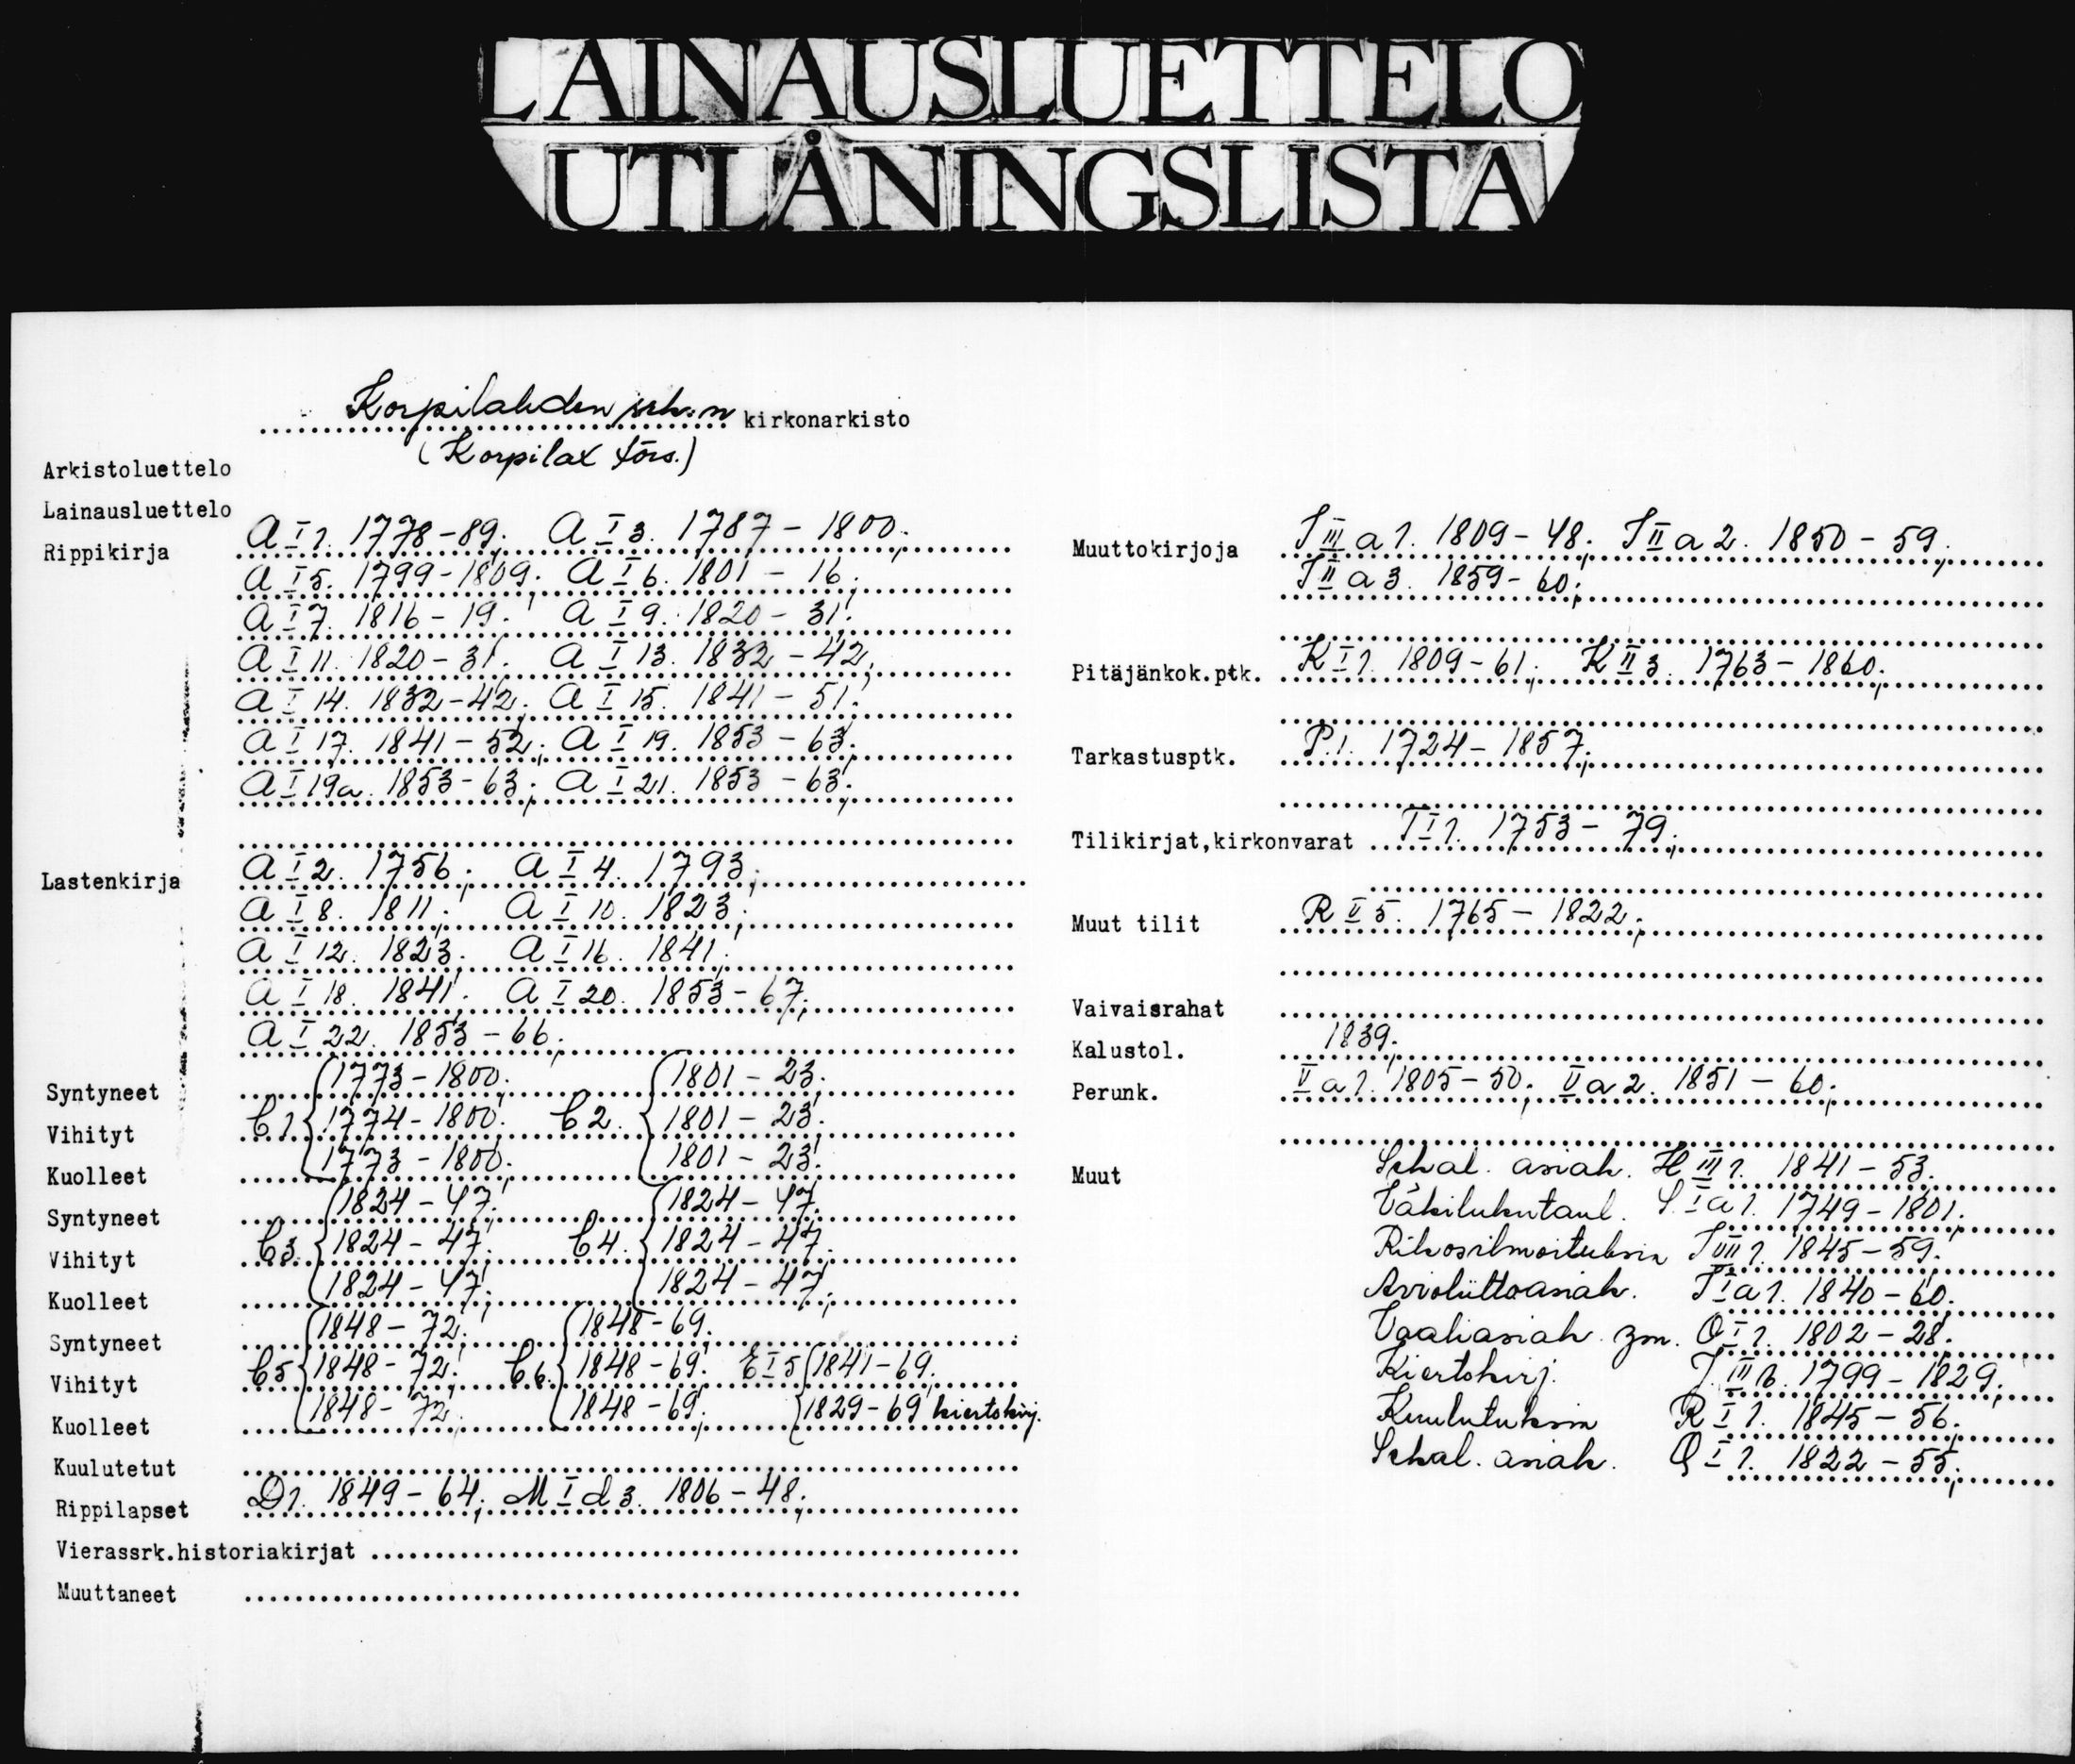 LAINAUSLUETTELO
UTLÅNINGSLISTA
Korpilahden srk:n kirkonarkisto
(Korpilax förs.)
Arkistoluettelo
Lainausluettelo
Rippikirja A I 1. 1778-89; A I 3. 1787-1800;
A I 5. 1799-1809; A I 6. 1801-16;
A I 7. 1816-19; A I 9. 1820-31;
A I 11. 1820-31; A I 13. 1832-42;
A I 14. 1832-42; A I 15. 1841-51;
A I 17. 1841-52; A I 19. 1853-63;
A I 19a. 1853-63; A I 21. 1853-63;
Lastenkirja A I 2. 1756; A I 4. 1793;
A I 8. 1811; A I 10. 1823;
A I 12. 1823; A I 16. 1841;
A I 18. 1841; A I 20. 1853-67;
A I 22. 1853-66;
Syntyneet 1773-1800; 1801-23;
Vihityt C 1 1774-1800; C 2. 1801-23;
Kuolleet 1773-1800; 1801-23;
Syntyneet 1824-47; 1824-47;
Vihityt C 3. 1824-47; C 4. 1824-47;
Kuolleet 1824-47; 1824-47;
Syntyneet 1848-72; 1848-69;
Vihityt C 5 1848-72; C 6. 1848-69; E I 5 1841-69;
Kuolleet 1848-72; 1848-69; 1829-69 kiertokirj.
Kuulutetut
Rippilapset D 1. 1849-64; M I d 3. 1806-48;
Vierassrk.historiakirjat
Muuttaneet
Muuttokirjoja I III a 1. 1809-48; I II a 2. 1850-59;
I II a 3. 1859-60;
Pitäjänkok.ptk. K I 1. 1809-61; K II 3. 1763-1860;
Tarkastusptk. P. 1. 1724-1857;
Tilikirjat,kirkonvarat T I 1. 1753-79;
Muut tilit R II 5. 1765-1822;
Vaivaisrahat
Kalustol. 1839;
Perunk. V a 1. 1805-50; V a 2. 1851-60;
Muut Sekal. asiak. H III 1. 1841-53;
Väkilukutaul. I a 1. 1749-1801;
Rikosilmoituksia I VII 1. 1845-59;
Avioliittoasiak. I I a 1. 1840-60;
Vaaliasiak. ym. O I 1. 1802-28;
Kiertokirj. 1799-1829;
Kuulutuksia R I 1. 1845-56;
Sekal. asiak. Q I 1. 1822-55;